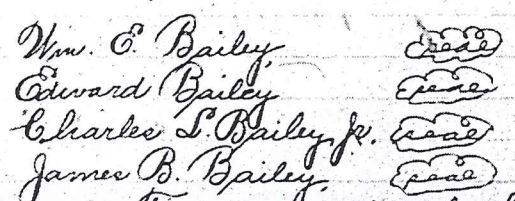 Wm. E. Bailey (seal)
Edward Bailey (seal)
Charles L. Bailey, Jr. (seal)
James B. Bailey. (seal)